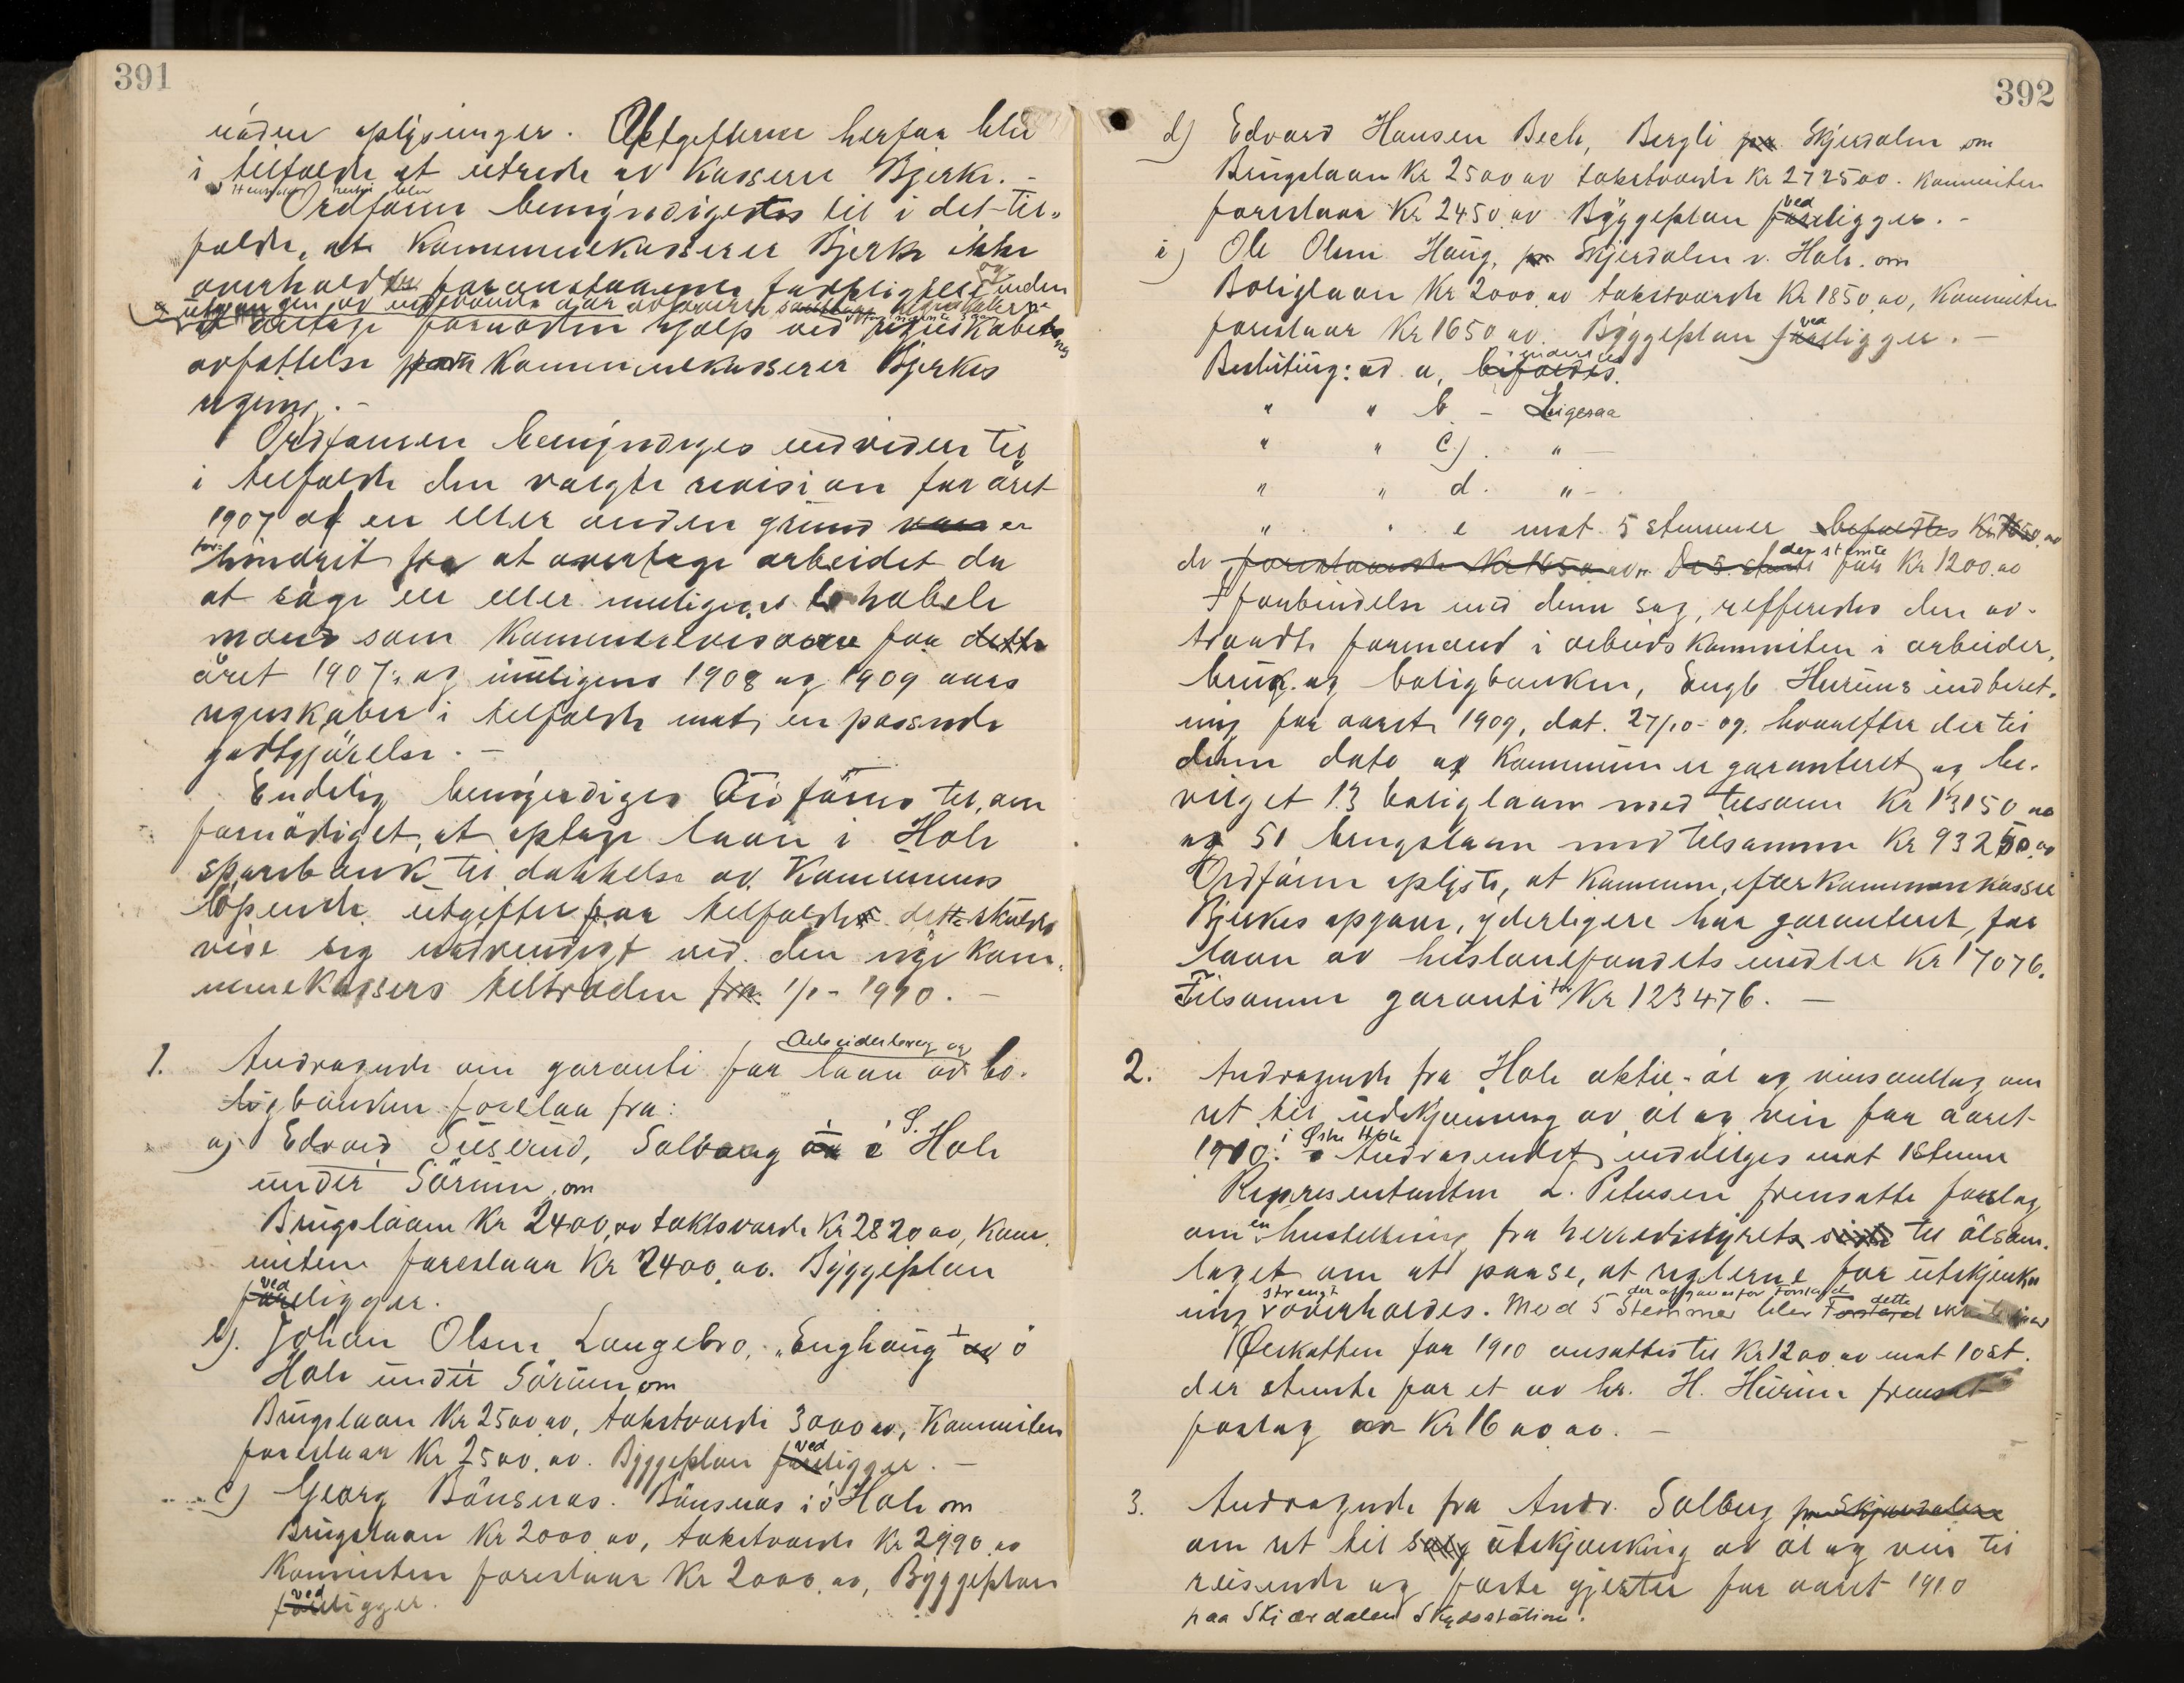 391
uåden oplysninger. Opkgifterne herfor blir
i tilfælde at utrede av Kasserer Bjerke. -
Ordføren bemyndigedes til i det til-
fælde, at Kommunekasserer Bjerke ikke
overholder foranstaaende forpligtelse og inden
utgangen av indeværende aar
at antage fornøden hjælp ved regnskabets
avfattelse paa Kommunekasserer Bjerkes
regning. -
Ordføreren bemyndiges endvidere til
i tilfælde den valgte revision for året
1907 af en eller anden grund var er
forhindret fra at overtage arbeidet da
at søge en eller muligens to habile
mænd som Kommunerevisorer for dette
året 1907, og muligens 1908 og 1909 aars
regnskaber i tilfælde mot en passende
godtgjörelse. -
Endelig bemyndiges Ordförer til, om
fornödiget, at optage laan i Hole
sparebank til dækkelse av Kommunens
löpende utgifter for tilfælde dette skulde
vise sig nødvendigt ved den nye kom-
munekassers tiltræden fra 1/1 - 1910. -
1. Andragende om garanti for laan av Arbeiderbrug og bo-
ligbanken forelaa fra:
a) Edvard Seeserud, Solberg i S. Hole
under Sörum, om
Brugslaan Kr 2400,00 takstværde Kr 2820 00, Kom-
miteen foreslaar Kr 2400,00. Byggeplan
foreligger. ved
b). Johan Olsen Langebro, "Enghaug" i ö
Hole under Sörum om
Brugslaan Kr 2500 00, takstværdi 3000 00, Kommiteen
foreslaar Kr 2500.00. Byggeplan foreligger. ved -
c) Georg Bönsnes. Bönsnes i ö Hole om
Brugslaan Kr 2000 00, takstværde Kr 2990.00
Kommiteen foreslaar Kr 2000.00, Byggeplan
foreligger. ved
392
d) Edvard Hansen Bech, Bergli pr Skjerdalen om
Brugslaan Kr 2500 00 takstværde Kr 2725 00. Kommiteen
foreslaar Kr 2450.00 Byggeplan foreligger. ved -
e) Ole Olsen Haug, pr Skjerdalen v. Hole. om
Boliglaan Kr 2000.00 takstværde Kr 1850,00, Kommiteen
foreslaar Kr 1650 00. Byggeplan foreligger. ved -
Beslutning: ad a, bifaldtes.
" " b - Ligesaa
" " c) . " -
" " d. " -
" " e mot 5 stemmer befaldtes Kr 1650.00
de foreslaaede Kr 1650.00. De 5 stemte der stemte for Kr 1200.00
I forbindelse med denne sag, refferedes den av-
traadte formand i arbeids kommiteen i arbeider-
brug. og boligbanken, Engb. Hurums indberet-
ning for aaret 1909, dat. 27/10 - 09. hvorefter der til
denne dato af Kommunen er garanteret og be-
vilget 13 boliglaan med tilsamme Kr 13150 00
og 51 brugslaan med tilsammen Kr 93250.00
Ordføren oplyste, at Kommunen, efter Kommunekasserer
Bjerkes opgave, yderligere har garanteret, for
laan av huslaanefondets midler Kr 17076.
Tilsamme garanti for Kr 123476. -
2. Andragende fra Hole aktie-öl og vinsamlag om
ret til udskjænkning av öl og vin for aaret
1910. i Øvre Hole Andragendet indvilges mot 1 stemme
Representanten L. Petersen fremsatte forslag
om en henstilling fra herredstyrets side til ölsam-
laget om at paase, at reglerne for utskjenk-
ning strengt overholdes. Med 5 Stemmer der afgaves for Forslaget blev dette ikke
Ølskatten for 1910 ansattes til Kr 1200.00 mot 10 st.
der stemte for et av hr. H. Hurum fremsat
forslag om Kr 1600.00. -
3. Andragende fra Andr. Solberg pr Skjærdalen
om ret til salg utskjænking av öl og vin til
reisende og faste gjester for aaret 1910
paa Skjærdalen Skydsstation.